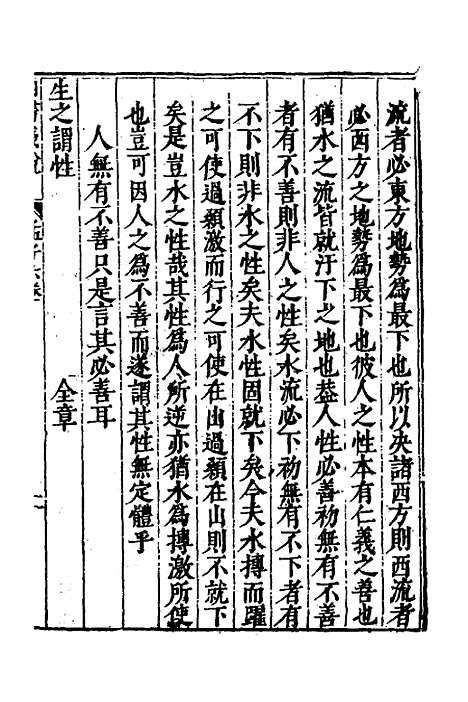 流者必東方地勢爲最下也所以决諸西方則西流者
必西方之地勢爲最下也彼人之性本有仁義之善也
猶水之流皆就汙下之地也葢人性必善初無有不善
者有不善則非人之性矣水流必下初無有不下者有
不下則非水之性矣夫水性固就下矣今夫水搏而躍
之可使過顙激而行之可使在山過顙在山則不就下
矣是豈水之性哉其性爲人所逆亦猶水爲搏激所使
也豈可因人之爲不善而遂謂其性無定體乎
人無有不善只是言其必善耳
生之謂性 全章